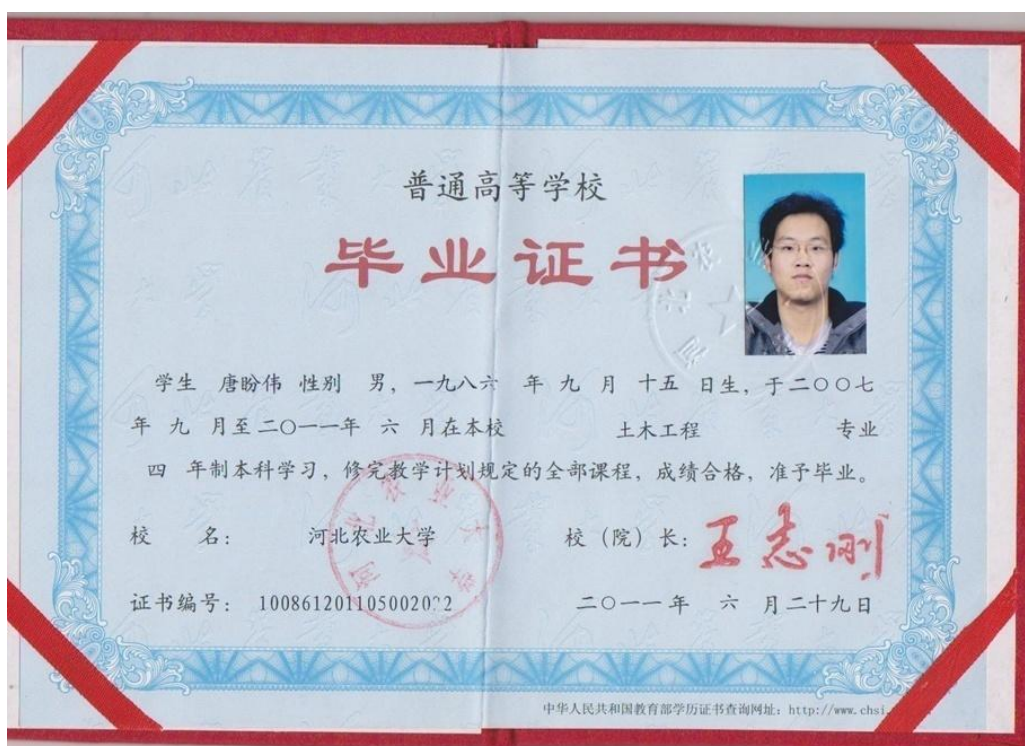 普通高等学校
毕业证书
学生 唐盼伟 性别 男，一九八六 年 九 月 十五 日生，于二〇〇七
年 九 月至二〇一一年 六 月在本校 土木工程 专业
四 年制本科学习，修完教学计划规定的全部课程，成绩合格，准予毕业。
校 名： 河北农业大学 校（院）长：王志刚
证书编号： 二〇一一年 六 月二十九日
中华人民共和国教育部学历证书查询网址：http://www.chsi
河北农业大学